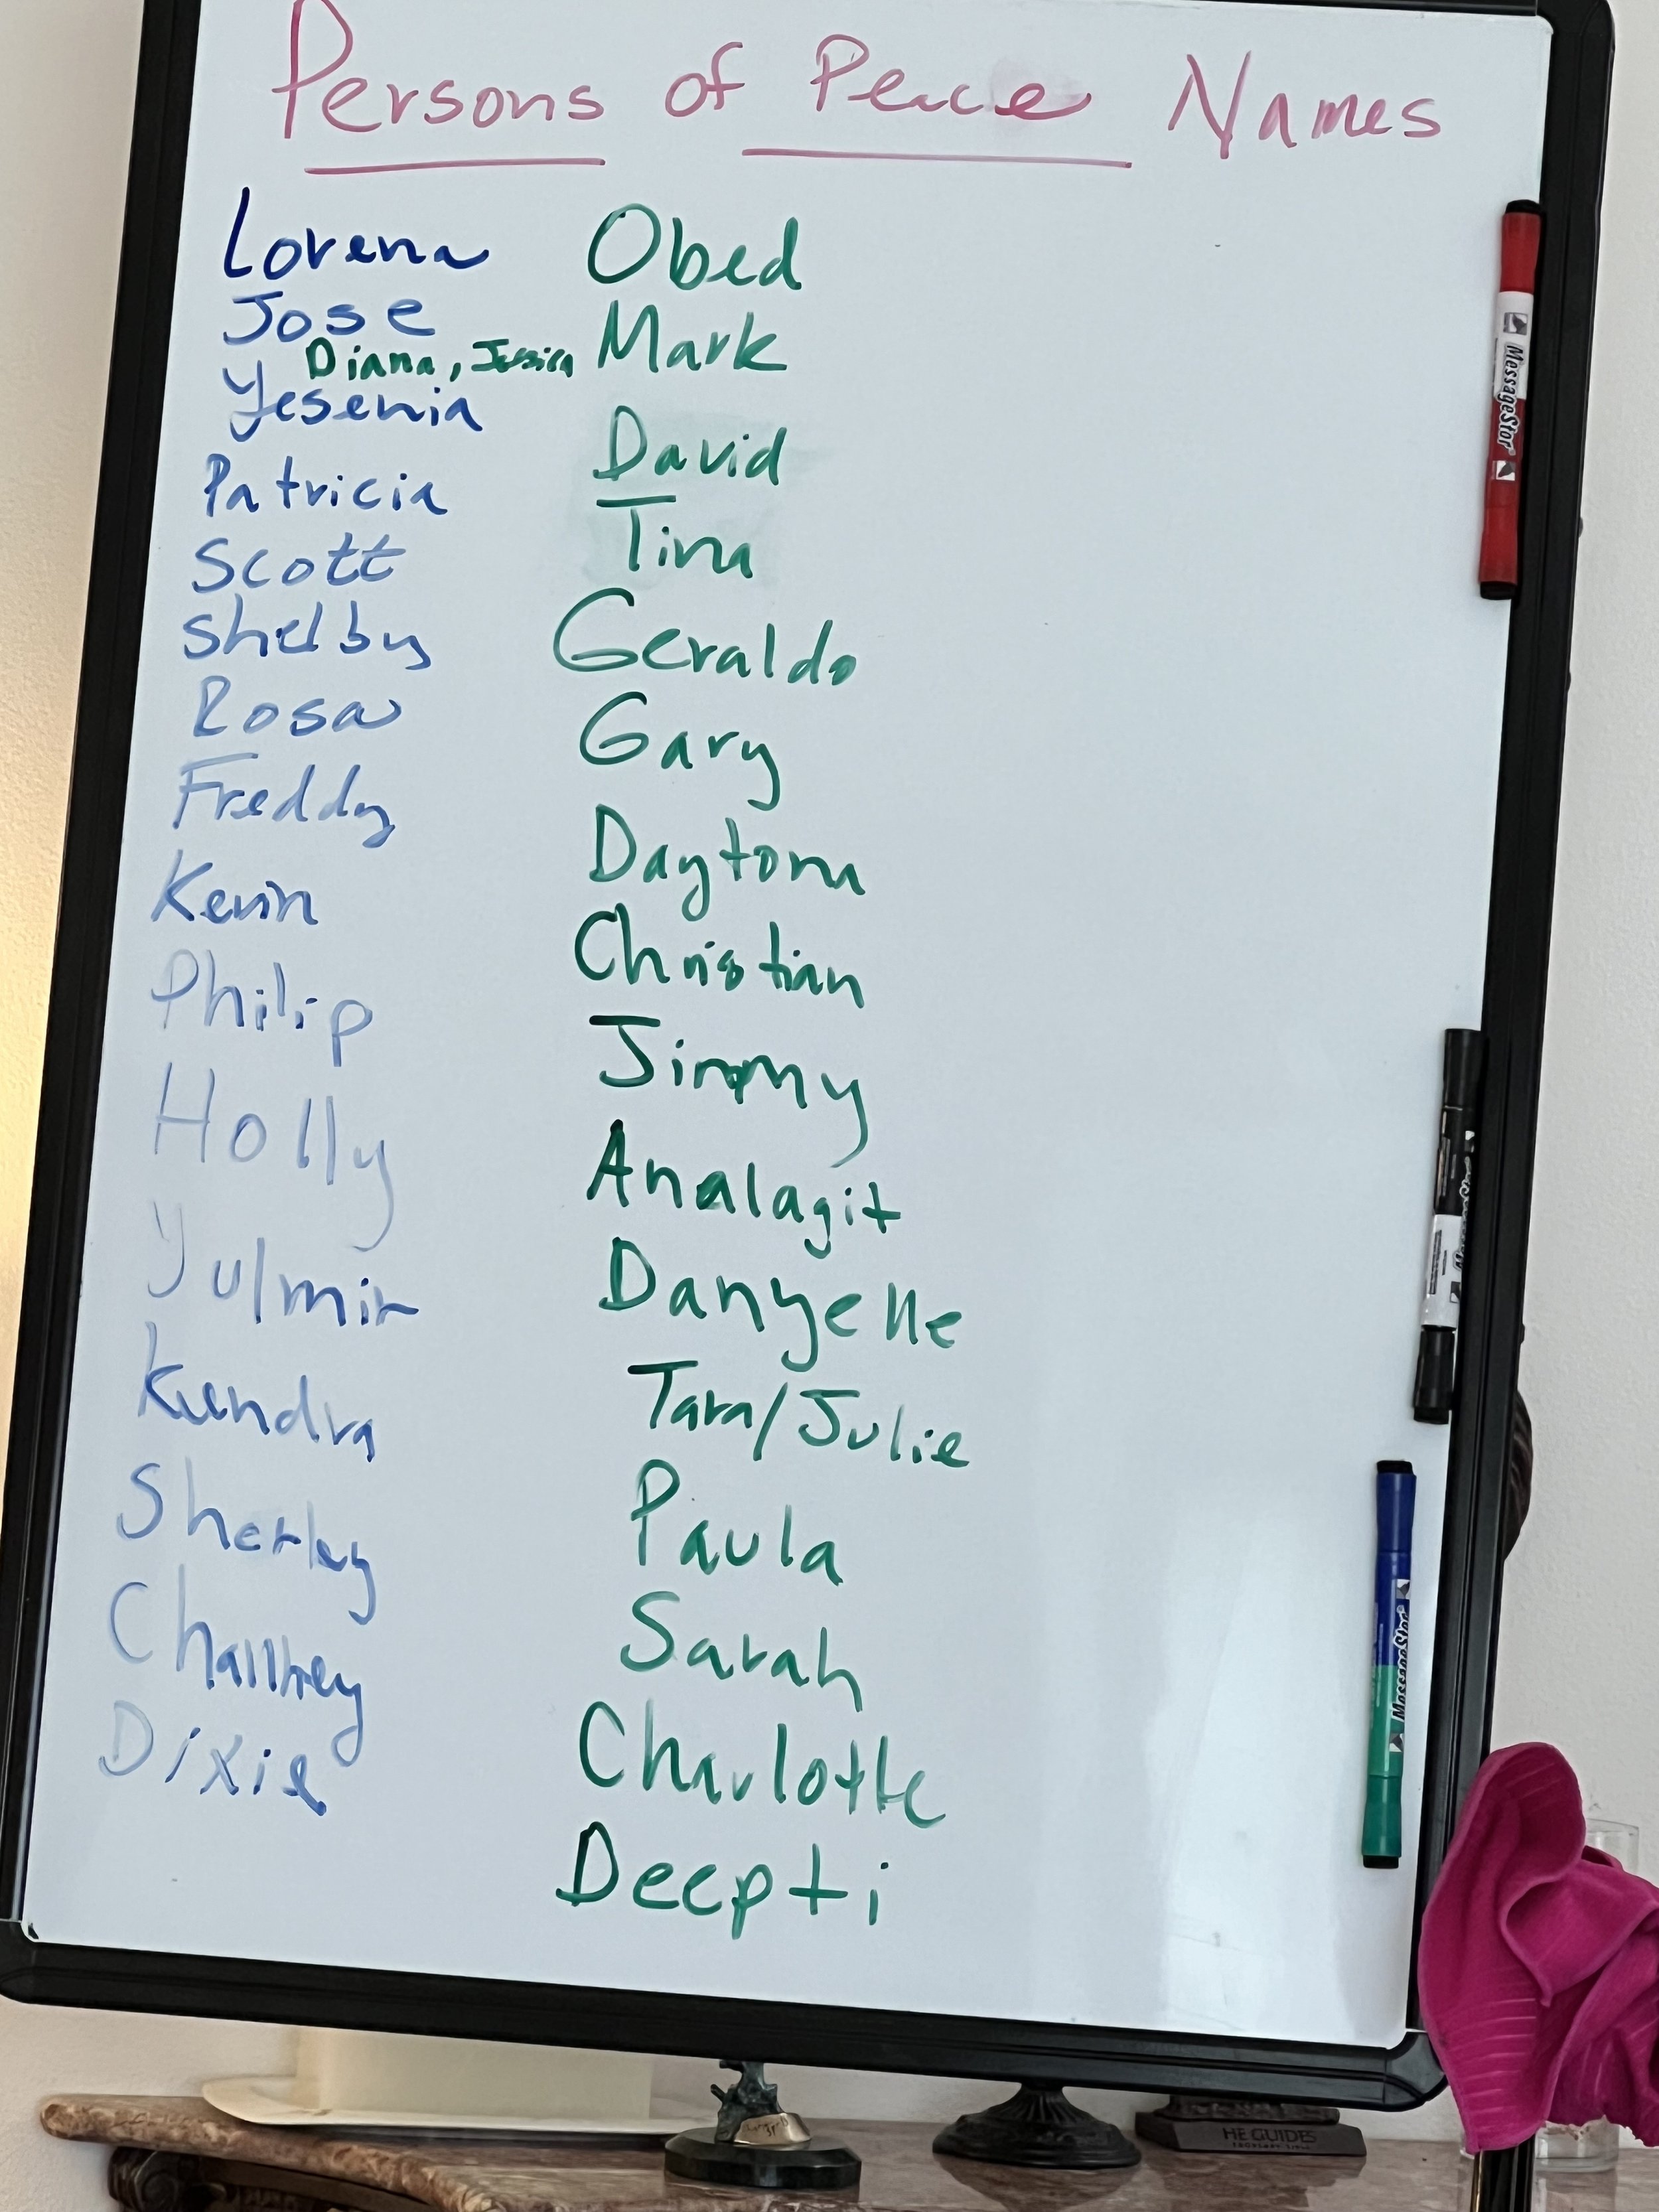 Persons of Peace Names
Lorena
Jose
Diana, Jessica
Yesenia
Patricia
Scott
Shelby
Rosa
Freddy
Kevin
Philip
Holly
Yulmir
Kendra
Sherley
Dixie
Obed
Mark
David
Tina
Geraldo
Gary
Daytona
Christian
Jimmy
Analagit
Danyelle
Tara/Julie
Paula
Sarah
Charlotte
Deepti
MessageStor
MessageStor
HE GUIDES